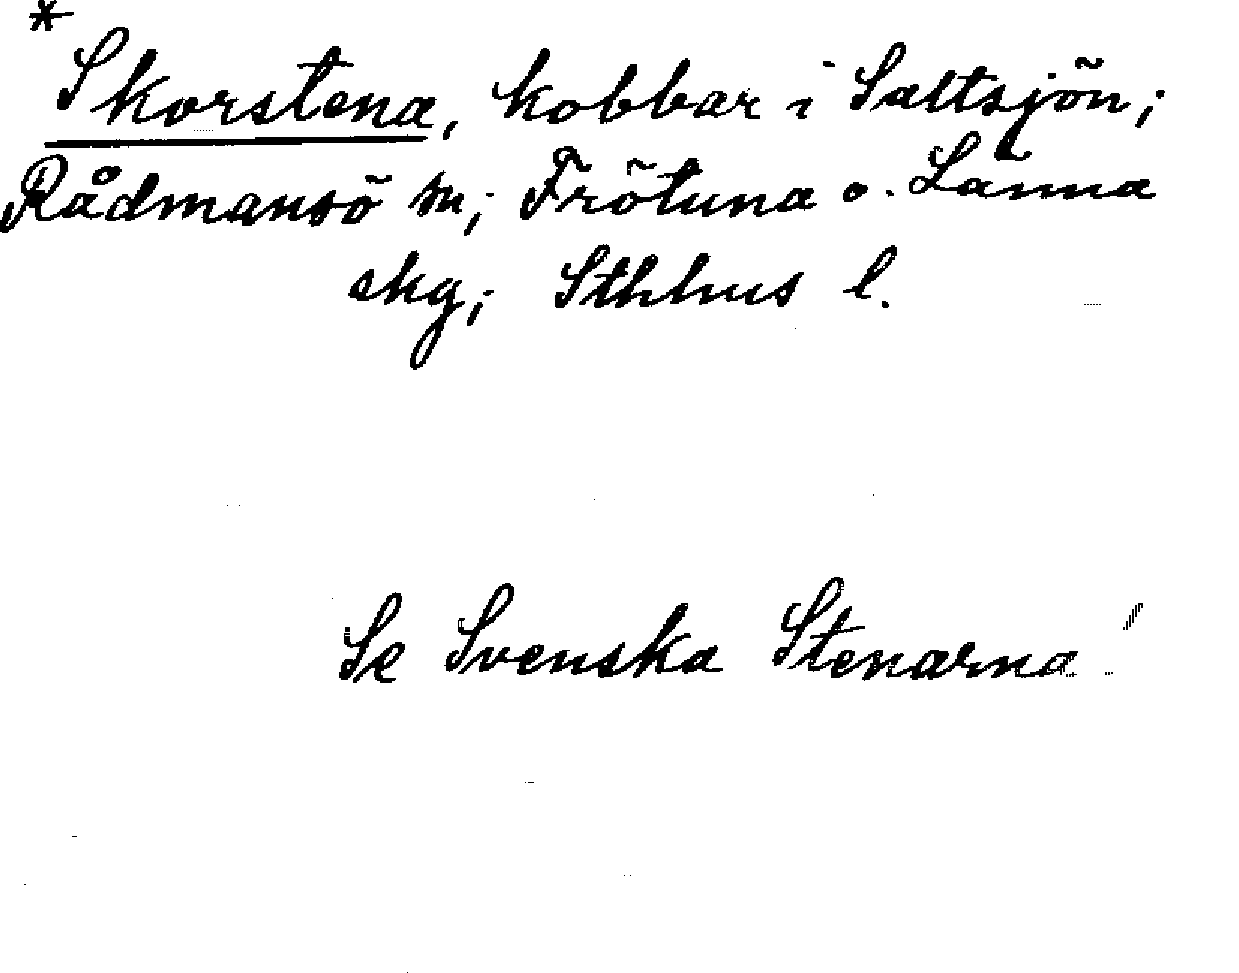 *
Skorstena, kobbar i Saltsjön;
Rådmansö sn; Frötuna o. Länna
skg; Sthlms l.
Se Svenska Stenarna!